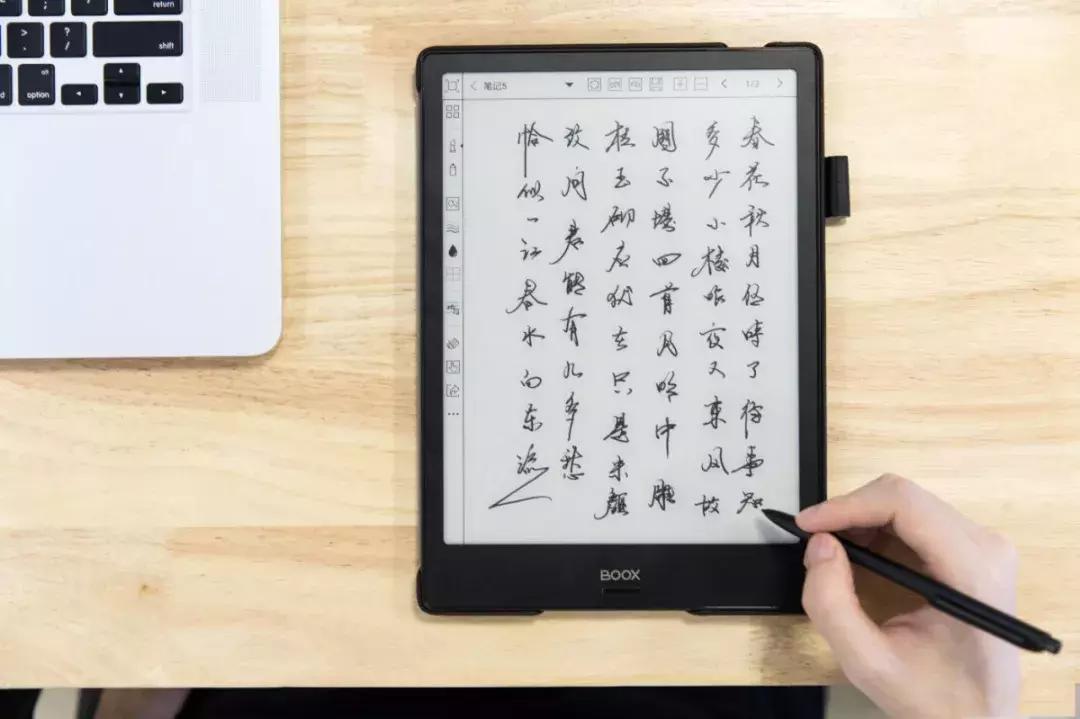 return
? /
shift
alt
option
笔记5
春花秋月何時了往事知
多少小楼昨夜又東风故
國不堪回首月明中雕
栏玉砌应犹在只是朱颜
改问君能有几多愁
恰似一江春水向东流
BOOX